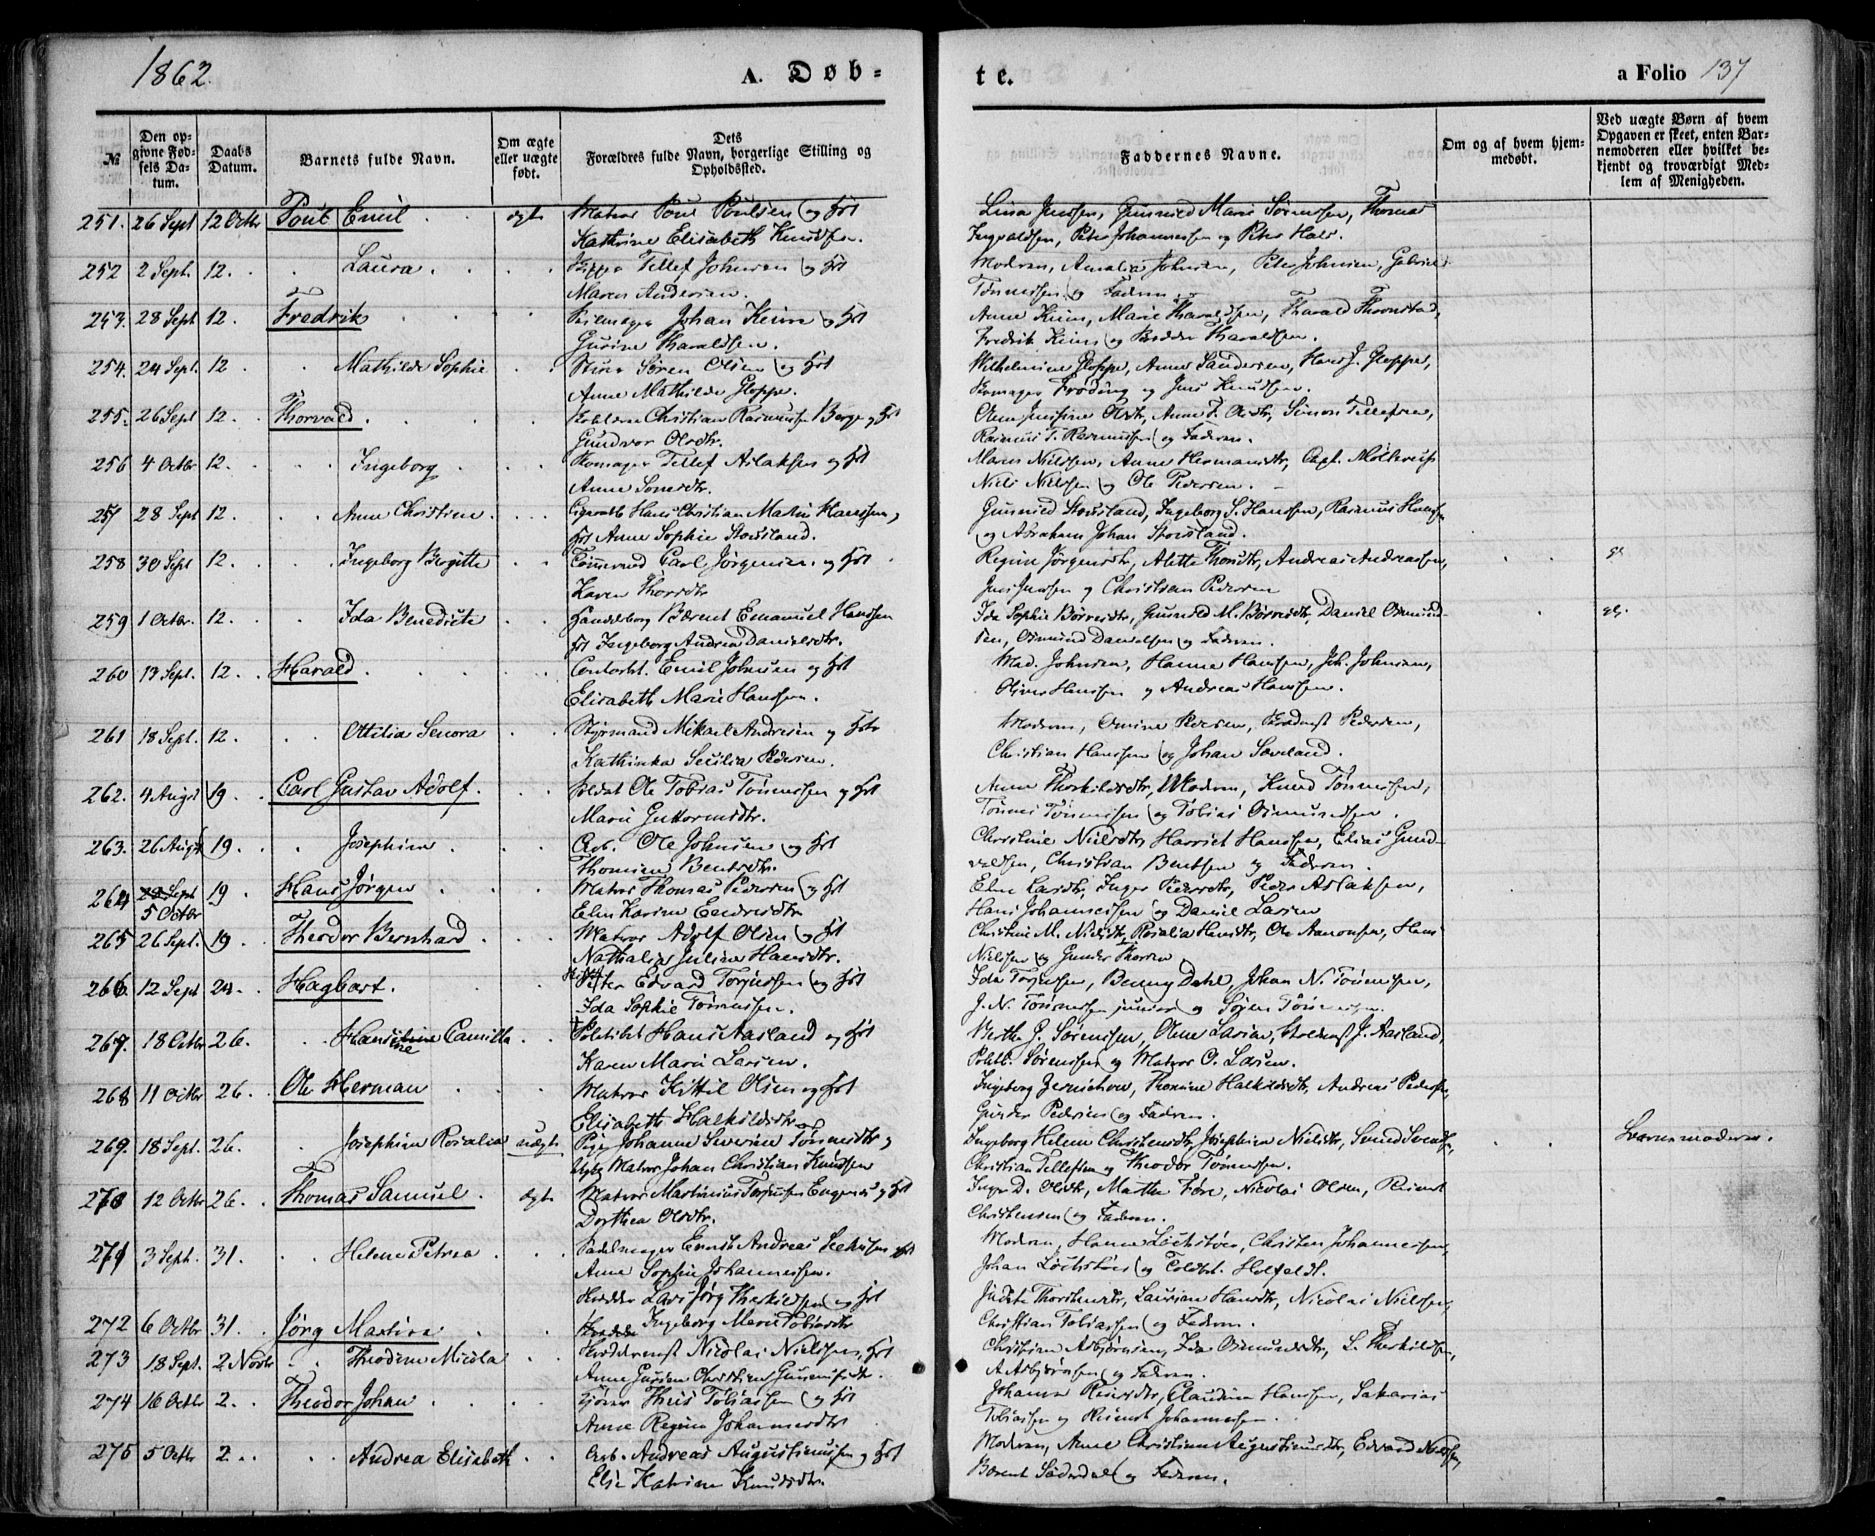 1862
A. Døb-
te.
a Folio 137
№
Den opgivne Fødsels Datum.
Daabs Datum.
Barnets fulde Navn.
Om ægte eller uægte født.
Dets Forældres fulde Navn, borgerlige Stilling og Opholdssted.
Faddernes Navne.
Om og af hvem hjemmedøbt.
Ved uægte Børn af hvem Opgaven er skeet, enten Barnemoderen eller hvilket bekjendt og troværdigt Medlem af Menigheden.
251. 26 Sept 12 Octbr Poul Emil ægte Matros Poul Poulsen og Hst
Kathrine Elisabeth Knudsen.
Lina Jenssen, Gunnild Marie Sørensen, Thomas
Ingvaldsen, Peter Johannessen og Peter Hals.
252 2 Sept. 12. Laura Tellef Johnsen og Hst
Maren Andersen.
Modren, Amalia Johnsen, Peter Johnsen, Gabriel
Tønnessen og Fadren.
253. 28 Sept 12. Fredrik Johan Keim og Hst
Gurine Haraldsen.
Anne Keim, Marie Haraldsen, Harald
Fredrik Keim og Haraldsen.
254. 24 Sept. 12 Mathilde Sophie Søren Olsen og Hst
Anne Mathilde Gloppe.
Wilhelmine Gloppe, Anne Sandersen, Hans J. Gloppe,
Skomager Frøding og Jens Knudsen.
255. 26 Sept 12. Thorvald Christian Rasmussen Berge og Hst
Gundvor Olsdtr.
Olene Jensine Olsdtr, Anne T. Olsdtr, Simon Tellefsen,
Rasmus T. Rasmussen og Fadren.
256 4 Octbr 12. Ingeborg Skomager Tellef Aslaksen og Hst
Anne
Maren Nielsen, Anne Hermansdtr, Capt. Mølterup
Niels Nielsen og Ole Pedersen.
257 28 Sept 12. Anne Christine Hans Christian Hanssen,
Hst Anne Sophie Stousland.
Gunnild Stousland, Ingeborg S. Hanssen, Rasmus Hanssen
og Abraham Johan Stousland.
258 30 Sept 12. Ingeborg Birgitte Tømmermd Carl Jørgensen og Hst
Karen Thorsdtr
Regine Jørgensdtr, Alette Thorsdtr, Andreas Andreassen,
Jens Jenssen og Christian Pedersen
259 1 Octbr. 12. Ida Benedicte Handelsborg Bærent Emanuel Hanssen
Hst Ingeborg Andrea Danielsdtr.
Ida Sophie Gunnild M. Daniel Osmundsen,
Osmund Danielsen og Fadren.
260 13 Sept. 12. Harald Contorbet. Emil Johnsen og Hst
Elisabeth Marie Hanssen.
Mad. Johnsen, Hanne Hanssen, Joh. Johnsen,
Oliver Hanssen og Andreas Hanssen.
261 18 Sept. 12. Ottilia Senora Styrmand Mikael Andresen og Hst
Kathinka Secilia Pedersen.
Modren, Omine Pedersen, Pedersen,
Christian Hanssen og Johan Soveland.
262. 4 Augst 19. Carl Gustav Adolf. Soldat Ole Tobias Tønnessen og Hst
Marie Guttormsdtr.
Anne Thorkildsdtr, Modren, Knud Tønnessen,
Tønnes Tønnessen og Tobias Osmundsen.
263. 26 Augst 19. Josephine Arb. Ole Johnsen og Hst
Thomine Bentsdtr.
Christine Nielsdtr, Harriet Hanssen, Elias Gundvaldsen, Christian Bentsen og Fadren.
264 22 Sept 5 Octbr 19 Hans Jørgen Matros Thomas Pedersen og Hst
Elen Karine Endresdtr
Elen Larsdtr, Inger Pedersdtr, Peder Aslaksen,
Hans Johannessen og Daniel Larsen
265 26 Sept. 19 Theodor Bernhard Matros Adolf Olsen og Hst
Nathalia Juliane Hansdtr.
Christine M. Nielsdtr, Rosalia Hansdtr, Ole Aanonsen, Hans
Nielsen og Gunder Thorsen
266. 12 Sept 24. Hagbart. Peter Edvard Torjussen og Hst
Ida Sophie Tønnessen.
Ida Torjussen, Benny Dahl, Johan N. Tønnessen,
J. N. Tønnessen junior og Søren Tønnessen.
267. 18 Octbr 26. Hansine Camilla Politibt Hans Aasland og Hst
Karen Marie Larsen.
Berthe G. Sørensen, Olene Larsen, J. Aasland,
Politb. Sørensen og Matros O. Larsen.
268 11 Octbr 26. Ole Herman Matros Kittil Olsen og Hst
Elisabeth Halkildsdtr
Ingeborg Jernschow, Thomine Halkildsdtr, Andreas Pedersen,
Gunder Pedersen og Fadren.
269. 18 Sept. 26. Josephine Rosalia uægte Pige Johanne Severine Tønnesdtr og
Ugbg Matros Johan Christian Knudsen
Ingeborg Helene Christensdtr, Josephine Nielsdtr, Svend Svendsen,
Christian Tellefsen og Theodor Tønnessen.
Barnemoderen.
270 12 Octbr 26. Thomas Samuel. ægte Matros Martinius Torjussen og Hst
Dorthea Olsdtr.
Inger D. Olsdtr, Marthe Fore, Nicolai Olsen, Reinert
Christensen og Fadren.
271 3 Sept. 31. Helene Petrea Sadelmager Ernst Andreas og Hst
Anne Sophie Johannessen.
Modren, Hanne Løchstøer, Christen Johannessen,
Johan Løchstøer og Toldbt. Holfeldt.
272 6 Octbr 31. Jørg Martin Lars Jørg Therkildsen og Hst
Ingeborg Marie Tobiasdtr
Judite Thorstensdtr, Laurine Hansdtr, Nicolai Nielsen,
Christian Tobiassen og Fadren.
273 18 Sept. 2 Novbr Theodine Nicola Nicolai Nielsen, Hst
Anne Gurine Christine
Christine Asbjørnsen, Ida Osmundsdtr, L. Therkildsen,
A. Asbjørnsen og Fadren.
274 16 Octbr 2. Theodor Johan Thius Tobiassen og Hst
Anne Regine Johannesdtr
Johanne Reiersdtr, Claudine Hanssen, Sakarias
Tobiassen og Reinert Johannessen.
275 5 Octbr 2. Andrea Elisabeth Arb. Andreas Augustinussen og Hst
Else Katrine Knudsdtr.
Modren, Anne Christine Augustinusdtr, Edvard
Bærent Søderdal og Fadren.